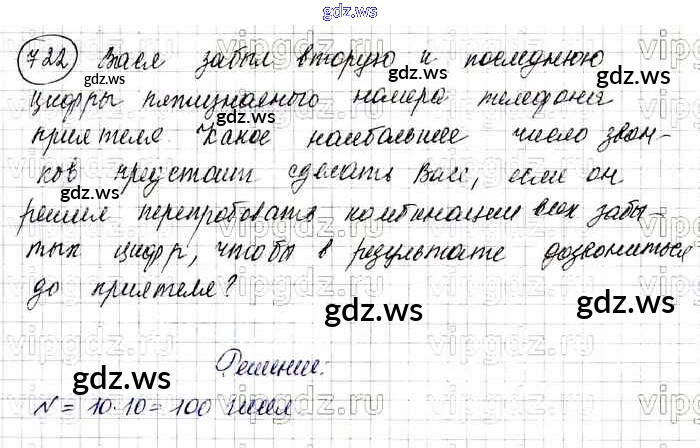 gdz.ws
722 Вася забыл вторую и последнюю
цифры пятизначного номера телефона
приятеля. Какое наибольшее число звон-
ков предстоит сделать Васе, если он
решил перепробовать комбинации всех забы-
тых цифр, чтобы в результате дозвониться
до приятеля?
Решение:
N = 10·10 = 100 чисел
gdz.ws
gdz.ws
gdz.ws
gdz.ws
gdz.ws
gdz.ws
gdz.ws
gdz.ws
vipgdz.ru